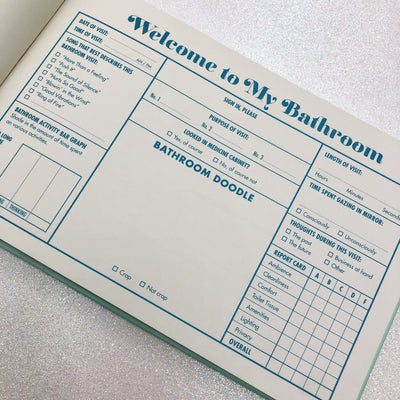 Welcome to My Bathroom
DATE OF VISIT:
TIME OF VISIT:
AM / PM
SONG THAT BEST DESCRIBES THIS
BATHROOM VISIT:
"More Than a Feeling"
"Push It"
"The Sound of Silence"
"Hurts So Good"
"Blowin' in the Wind"
"Good Vibrations"
"Ring of Fire"
BATHROOM ACTIVITY BAR GRAPH
Shade in the amount of time spent
on various activities.
LONG
THINKING
SIGN IN, PLEASE
PURPOSE OF VISIT:
No. 1
No. 2
No. 3
LOOKED IN MEDICINE CABINET?
Yes, of course
No, of course not
BATHROOM DOODLE
Crap
Not crap
LENGTH OF VISIT:
Hours
Minutes
Seconds
TIME SPENT GAZING IN MIRROR:
Consciously
Unconsciously
THOUGHTS DURING THIS VISIT:
The past
Business at hand
The future
Other
REPORT CARD
A
B
C
D
F
Ambience
Cleanliness
Comfort
Toilet Tissue
Amenities
Lighting
Privacy
OVERALL